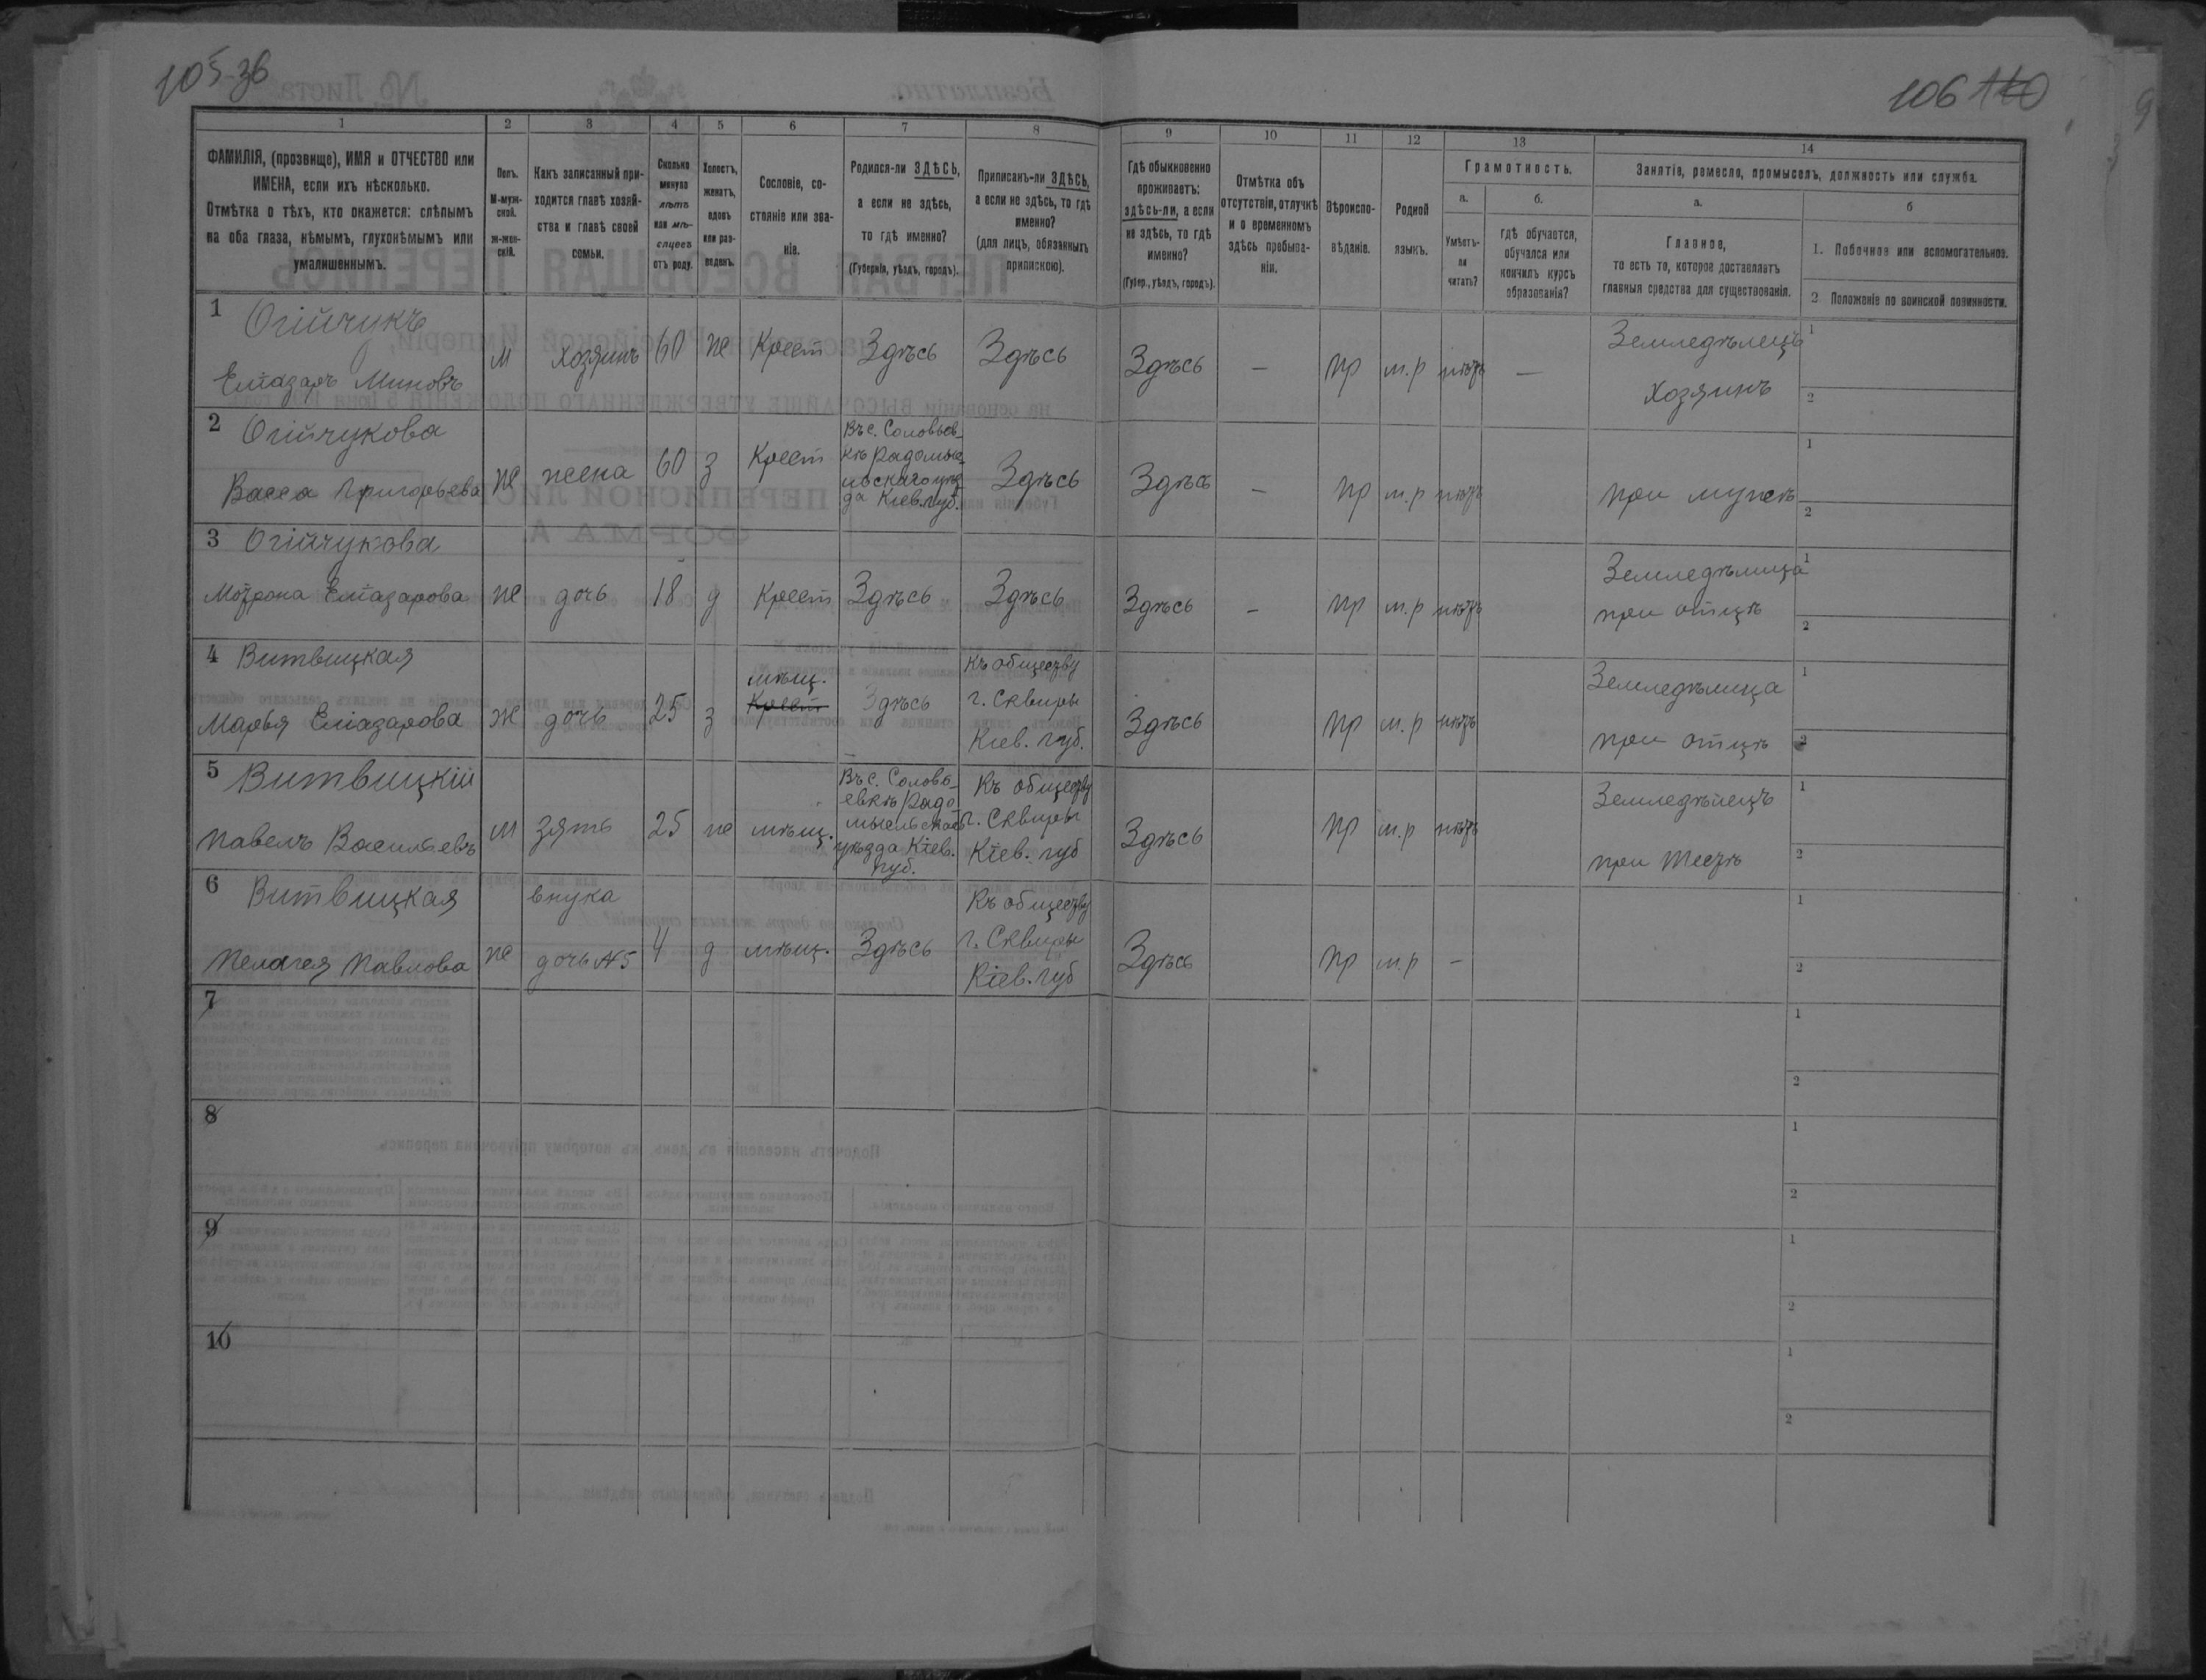 105-зв
106 110
1
2
3
4
5
6
7
8
9
10
11
12
13
14
ФАМИЛІЯ, (прозвище), ИМЯ и ОТЧЕСТВО или
ИМЕНА, если ихъ нѣсколько.
Отмѣтка о тѣхъ, кто окажется: слѣпымъ
на оба глаза, нѣмымъ, глухонѣмымъ или
умалишеннымъ.
Полъ.
М-муж-
ской.
ж-жен-
скій.
Какъ записанный при-
ходится главѣ хозяй-
ства и главѣ своей
семьи.
Сколько
минуло
лѣтъ
или мѣ-
сяцевъ
отъ роду.
Холостъ,
женатъ,
вдовъ
или раз-
веденъ.
Сословіе, со-
стояніе или зва-
ніе.
Родился-ли ЗДѢСЬ,
а если не здѣсь,
то гдѣ именно?
(Губернія, уѣздъ, городъ).
Приписанъ-ли ЗДѢСЬ,
а если не здѣсь, то гдѣ
именно?
(для лицъ, обязанныхъ
припискою).
Гдѣ обыкновенно
проживаетъ:
здѣсь-ли, а если
не здѣсь, то гдѣ
именно?
(Губер., уѣздъ, городъ).
Отмѣтка объ
отсутствіи, отлучкѣ
и о временномъ
здѣсь пребыва-
ніи.
Вѣроиспо-
вѣданіе.
Родной
языкъ.
Грамотность.
а.
Умѣетъ-
ли
читать?
б.
гдѣ обучается,
обучался или
кончилъ курсъ
образованія?
Занятіе, ремесло, промыселъ, должность или служба.
а.
Главное,
то есть то, которое доставляетъ
главныя средства для существованія.
б
1. Побочное или вспомогательное.
2 Положеніе по воинской повинности.
1 Огійчукъ
Еліазаръ Миновъ
м хозяинъ 60 же Крест Здѣсь Здѣсь Здѣсь — пр м.р нѣтъ —
Земледѣлецъ
хозяинъ
1
2
2 Огійчукова
Васса Григорьева
же жена 60 з Крест
Въ с. Соловьев-
кѣ Радомы-
льскаго уѣз-
да Кіев. губ.
Здѣсь Здѣсь — пр м.р нѣтъ
при мужѣ
1
2
3 Огійчукова
Мотрона Еліазарова
же дочь 18 д Крест Здѣсь Здѣсь Здѣсь — пр м.р нѣтъ
Земледѣлица
при отцѣ
1
2
4 Витвицкая
Марья Еліазарова
ж дочь 25 з
мѣщ.
Крест
Здѣсь
Къ обществу
г. Сквиры
Кіев. губ.
Здѣсь пр м.р нѣтъ
Земледѣлица
при отцѣ
1
2
5 Витвицкій
Павелъ Васильевъ
м зять 25 же мѣщ.
Въ с. Соловь-
евкѣ Радо
мысльскаго
уѣзда Кіев.
губ.
Къ обществу
г. Сквиры
Кіев. губ
Здѣсь пр м.р нѣтъ
Земледѣлецъ
при тестѣ
1
2
6 Витвицкая
Пелагея Павлова
же
внука
дочь №5
4 д мѣщ. Здѣсь
Къ обществу
г. Сквиры
Кіев. губ
Здѣсь пр м.р —
1
2
7
1
2
8
1
2
9
1
2
10
1
2